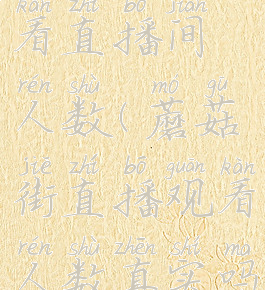 kàn zhí bō jiān
看直播间
rén shù mó gū
人数(蘑菇
jiē zhí bō guān kàn
街直播观看
rén shù zhēn shí ma
人数真实吗